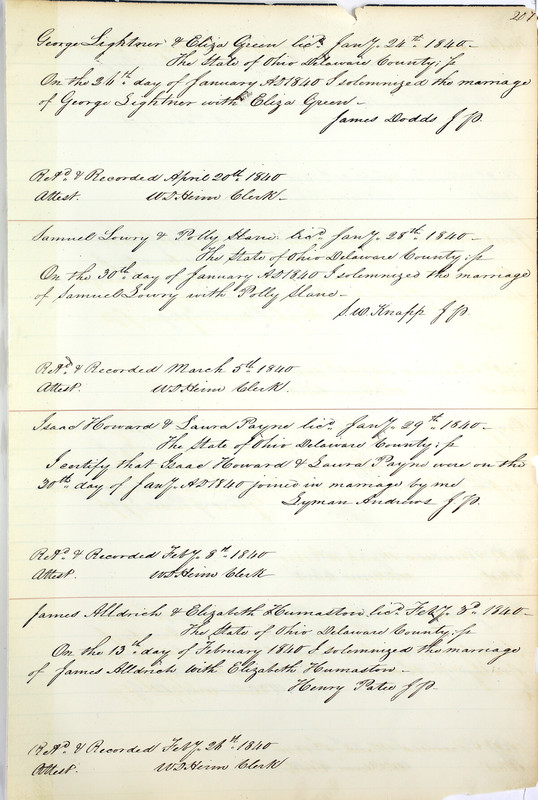 207
George Lightner & Eliza Green licd. Jany. 24th. 1840-
The State of Ohio Delaware County; ss
On the 24th. day of January AD 1840 I solemnized the marriage
of George Lightner with Eliza Green-
James Dodds J P.
Retd. & Recorded April 20th. 1840
Attest. W D Heim Clerk-
Samuel Lowry & Polly Slane licd. Jany. 28th. 1840-
The State of Ohio Delaware County; ss
On the 30th. day of January AD 1840 I solemnized the marriage
of Samuel Lowry with Polly Slane-
S. W. Knapp J P.
Retd. & Recorded March 5th. 1840
Attest. W D Heim Clerk.
Isaac Howard & Laura Payne licd. Jany. 29th. 1840-
The State of Ohio Delaware County; ss
I certify that Isaac Howard & Laura Payne were on the
30th. day of Jany. AD 1840 joined in marriage by me
Lyman Andrews J P.
Retd. & Recorded Feby. 8th. 1840
Attest. W D Heim Clerk
James Alldrich & Elizabeth Humaston licd. Feby. 3d. 1840-
The State of Ohio Delaware County; ss
On the 13th. day of February 1840 I solemnized the marriage
of James Alldrich with Elizabeth Humaston-
Henry Patee J P.
Retd. & Recorded Feby. 26th. 1840
Attest. W D Heim Clerk